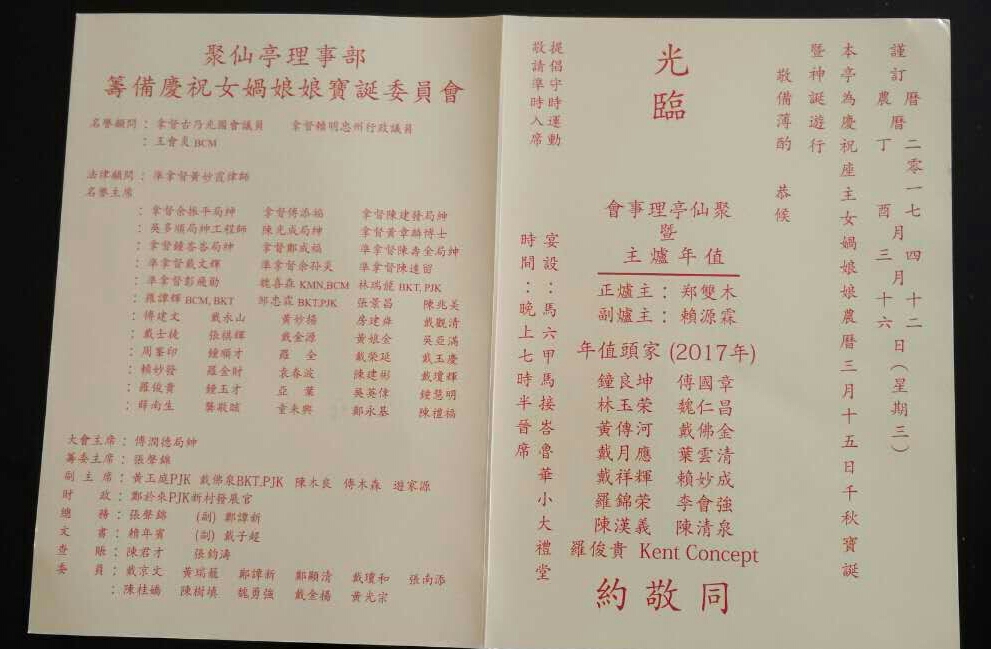 聚仙亭理事部
籌備慶祝女媧娘娘寶誕委員會
名譽顧問：拿督古乃光國會議員 拿督鐘明忠州行政議員
：王會炎 BCM
法律顧問：準拿督黃妙霞律師
名譽主席
：拿督余振平局紳 拿督傅添福 拿督陳建發局紳
：英多順局紳工程師 陳光成局紳 拿督黃章麟博士
：拿督鍾岺岺局紳 拿督鄭成福 準拿督陳壽全局紳
：準拿督戴文輝 準拿督余孙炎 準拿督陳達留
：準拿督彭飛勛 魏喜森 KMN,BCM 林瑞龍 BKT, PJK
：羅譚輝 BCM, BKT 邱忠霖 BKT,PJK 張景昌 陳兆美
：傅建文 戴永山 黃妙揚 房建舜 戴觀清
：戴士徒 張祺輝 戴金源 黃娘全 吳亞滿
：周峯印 鍾順才 羅全 戴榮延 戴玉慶
：賴妙發 羅金財 袁春波 陳建彬 戴瓊輝
：羅俊貴 鍾玉才 亞葉 吳英偉 鍾慧明
：薛尚生 龔敬 童未興 鄭永基 陳禮福
大會主席：傅潤德局紳
籌委主席：張聲錦
副主席：黃玉庭PJK 戴佛泉BKT.PJK 陳木良 傅木森 遊家源
財政：鄭於來PJK新村發展官
總務：張聲錦 (副) 鄭譚新
文書：賴年賓 (副) 戴子超
查賬：陳君才 張鈞濤
委員：戴京文 黃瑞蓊 鄭譚新 鄭顯清 戴瓊和 張南添
：陳桂嬌 陳樹填 魏勇強 戴金揚 黃光宗
謹訂 曆農曆 二零一七丁酉 年 四三月 十二十六 日（星期三）
本亭為慶祝座主女媧娘娘農曆三月十五日千秋寶誕
暨神誕遊行
敬備薄酌 恭候
光臨
提倡守時運動
敬請準時入席
會事理亭仙聚
暨
主爐年值
正爐主：郑雙木
副爐主：賴源霖
年值頭家 (2017年)
鐘良坤 傅國章
林玉荣 魏仁昌
黃傳河 戴佛金
戴月應 葉雲清
戴祥輝 賴妙成
羅錦荣 李會強
陳漢義 陳清泉
羅俊貴 Kent Concept
約敬同
宴設：馬六甲馬接峇魯華小大禮堂
時間：晚上七時半晉席